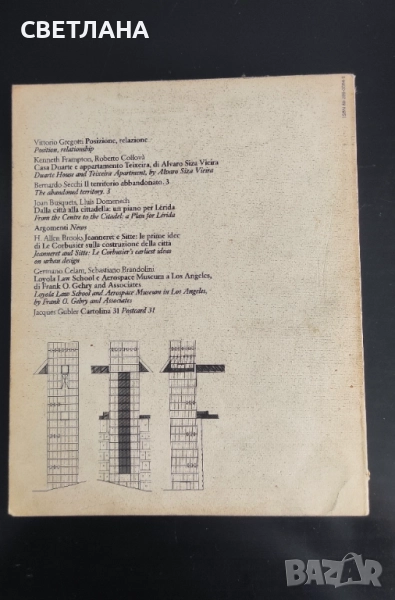 СВЕТЛАНА
Vittorio Gregotti Posizione, relazione
Position, relationship
Kenneth Frampton, Roberto Collovà
Casa Duarte e appartamento Teixeira, di Alvaro Siza Vieira
Duarte House and Teixeira Apartment, by Alvaro Siza Vieira
Bernardo Secchi Il territorio abbandonato. 3
The abandoned territory. 3
Joan Busquets, Lluís Domènech
Dalla città alla cittadella: un piano per Lérida
From the Centre to the Citadel: a Plan for Lérida
Argomenti News
H. Allen Brooks Jeanneret e Sitte: le prime idee
di Le Corbusier sulla costruzione della città
Jeanneret and Sitte: Le Corbusier's earliest ideas
on urban design
Germano Celant, Sebastiano Brandolini
Loyola Law School e Aerospace Museum a Los Angeles,
di Frank O. Gehry and Associates
Loyola Law School and Aerospace Museum in Los Angeles,
by Frank O. Gehry and Associates
Jacques Gubler Cartolina 31 Postcard 31
BAZAR